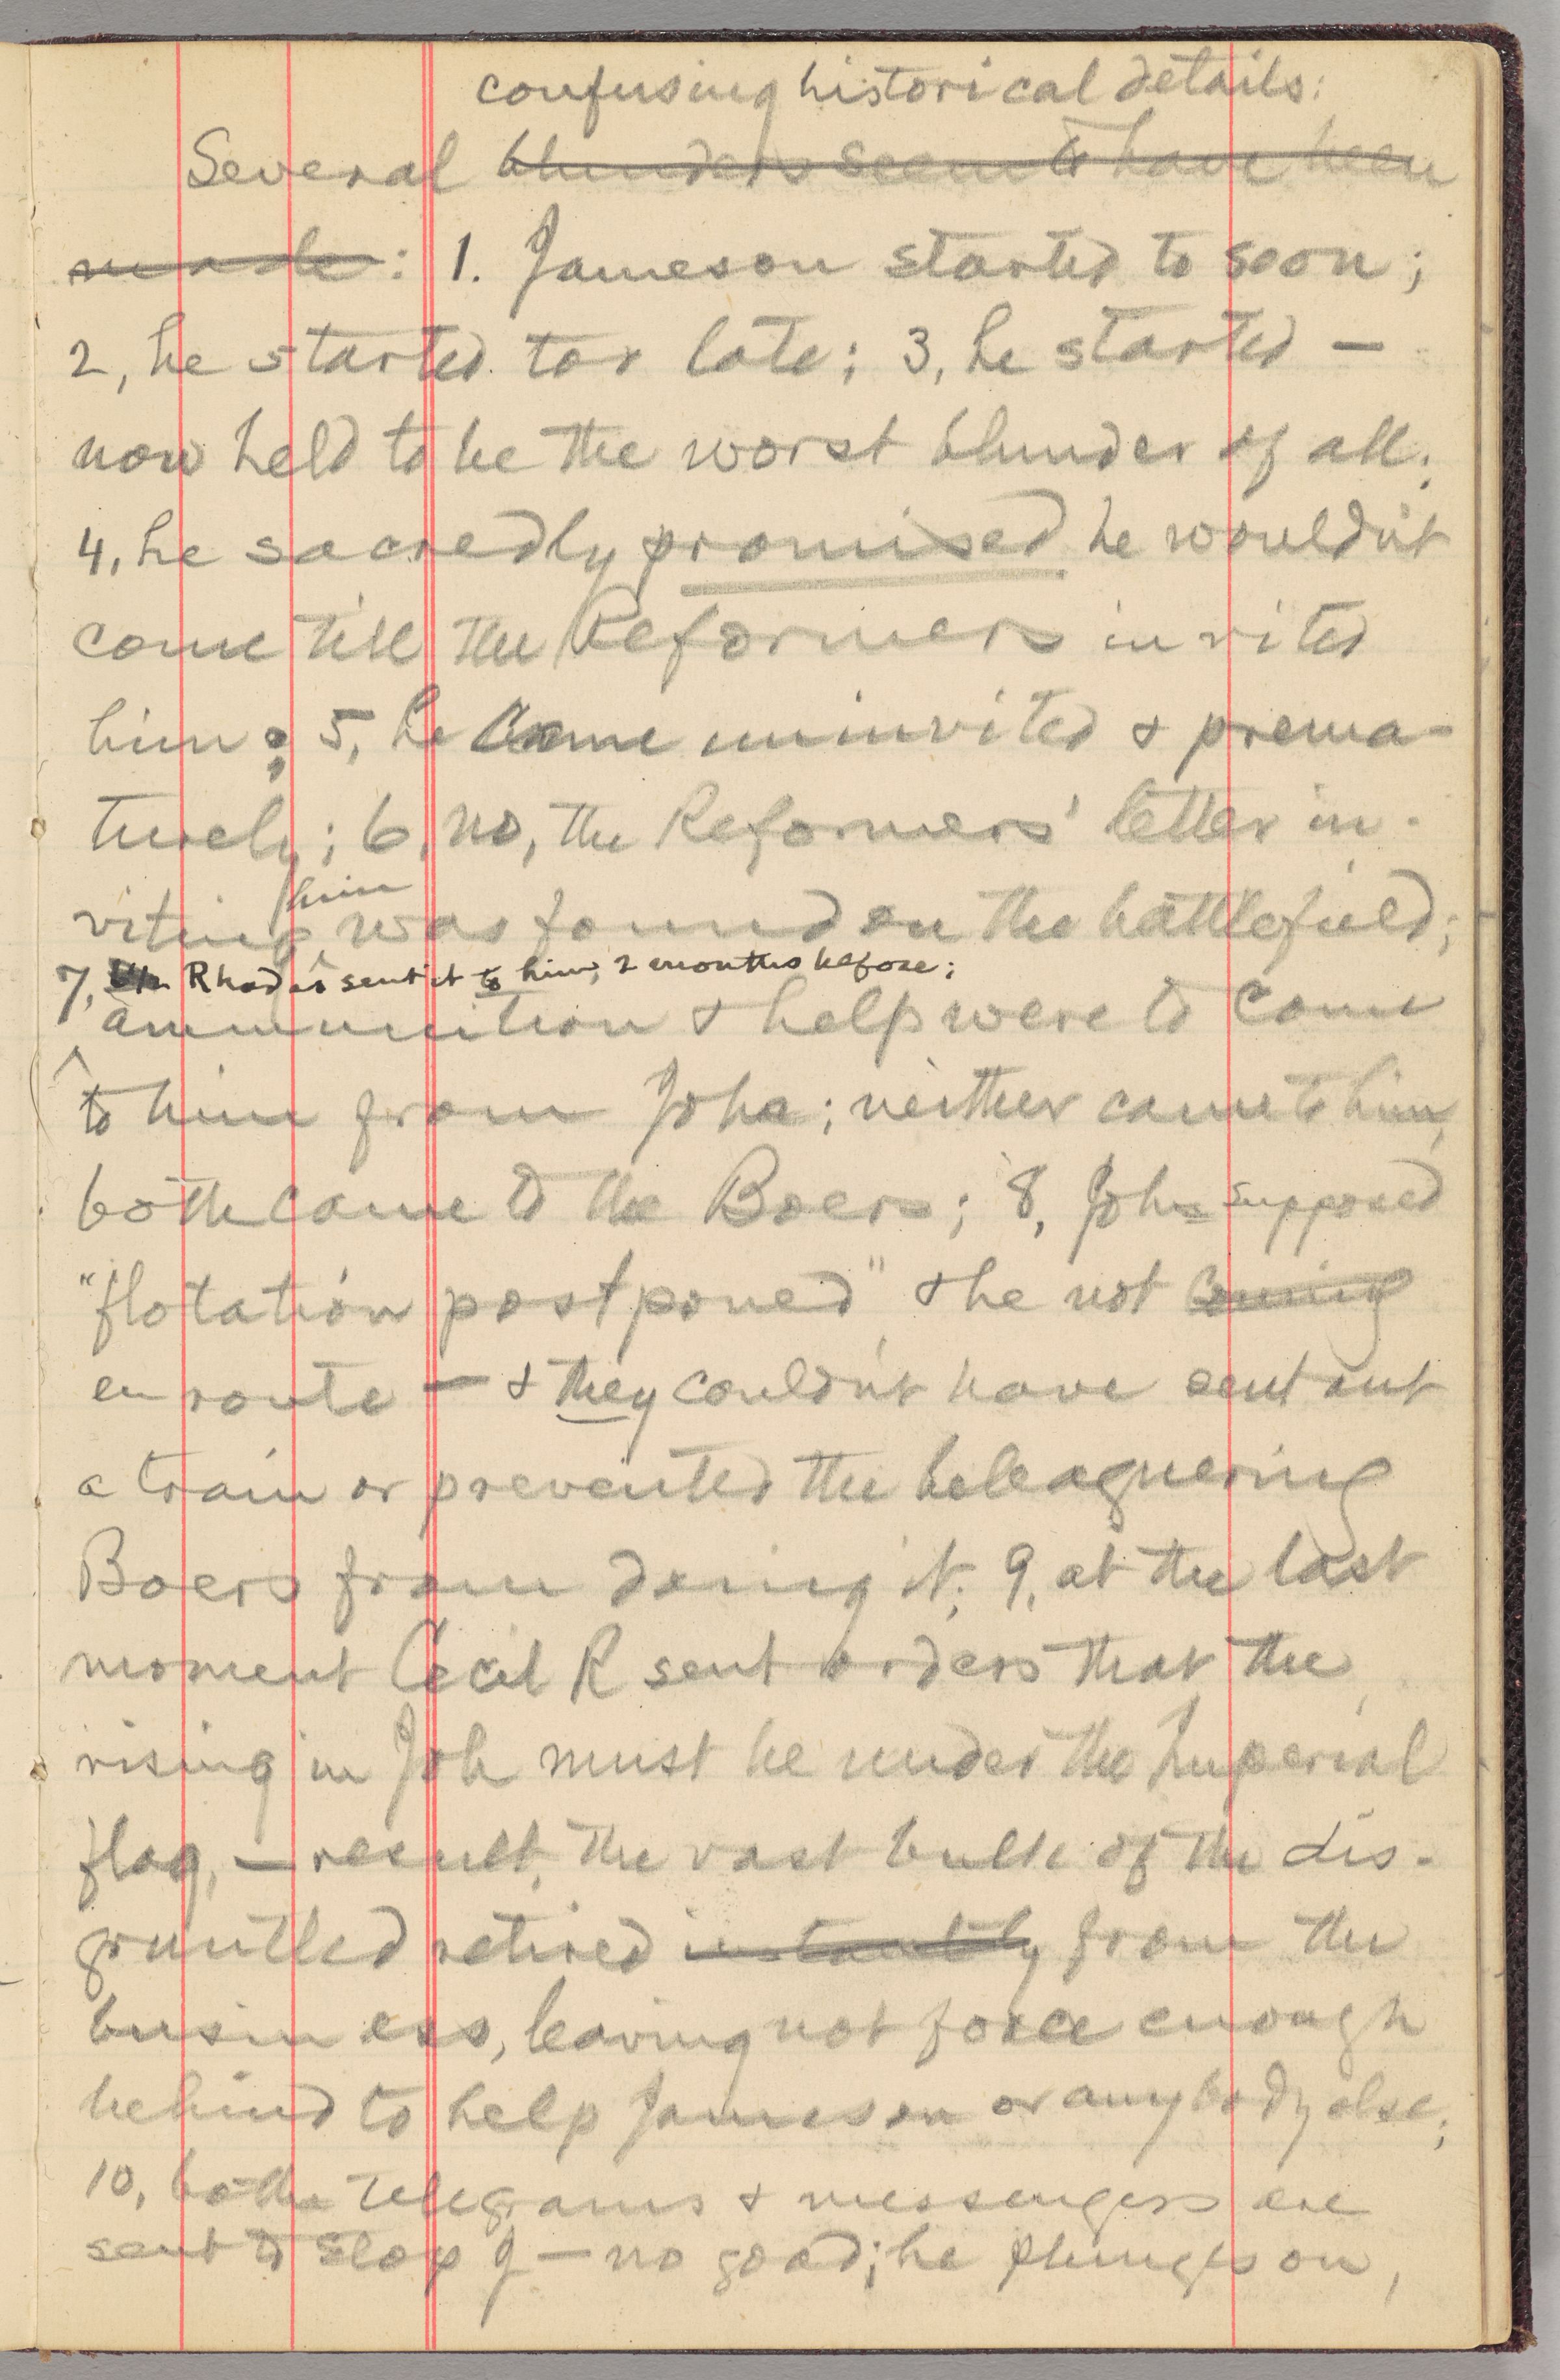 confusing historical details:
Several blunders seem to have been
made: 1. Jameson started to soon;
2, he started too late; 3, he started —
now held to be the worst blunder of all;
4, he sacredly promised he wouldn't
come till the Reformers invited
him; 5, he came uninvited & prema-
turely; 6, no, the Reformers' letter in-
him
viting was found on the battlefield;
7, Rhodes sent it to him, 2 months before;
ammunition & help were to come
to him from Joha; neither came to him,
both came to the Boers; 8, Joh supposed
"flotation postponed" & he not coming
en route — & they couldn't have sent out
a train or prevented the beleaguering
Boers from doing it; 9, at the last
moment Cecil R sent orders that the
rising in Joh must be under the Imperial
flag, — result, the vast bulk of the dis-
gruntled retired instantly from the
business, leaving not force enough
behind to help Jameson or anybody else;
10, both telegrams & messengers are
sent to stop J — no good; he plunges on,